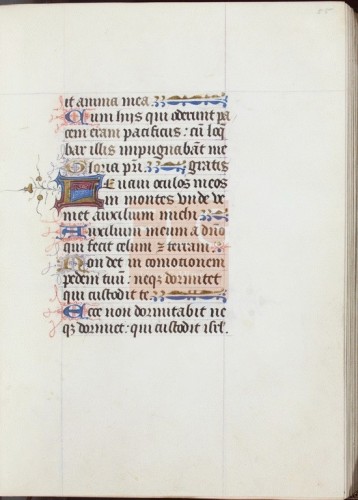 it anima mea.
Cum hys qui oderunt pa
cem eram pacificus: cū loq̄
bar illis impugnabāt me
Gloria pr̄i. gratis
Leuaui oculos meos
in montes vnde ve
niet auxilium michi
Auxilium meum a dn̄o
qui fecit celum ⁊ terram.
Non det in comotionem
pedem tuū: neqꝫ dormitet
qui custodit te.
Ecce non dormitabit ne
qꝫ dormiet: qui custodit isrl.